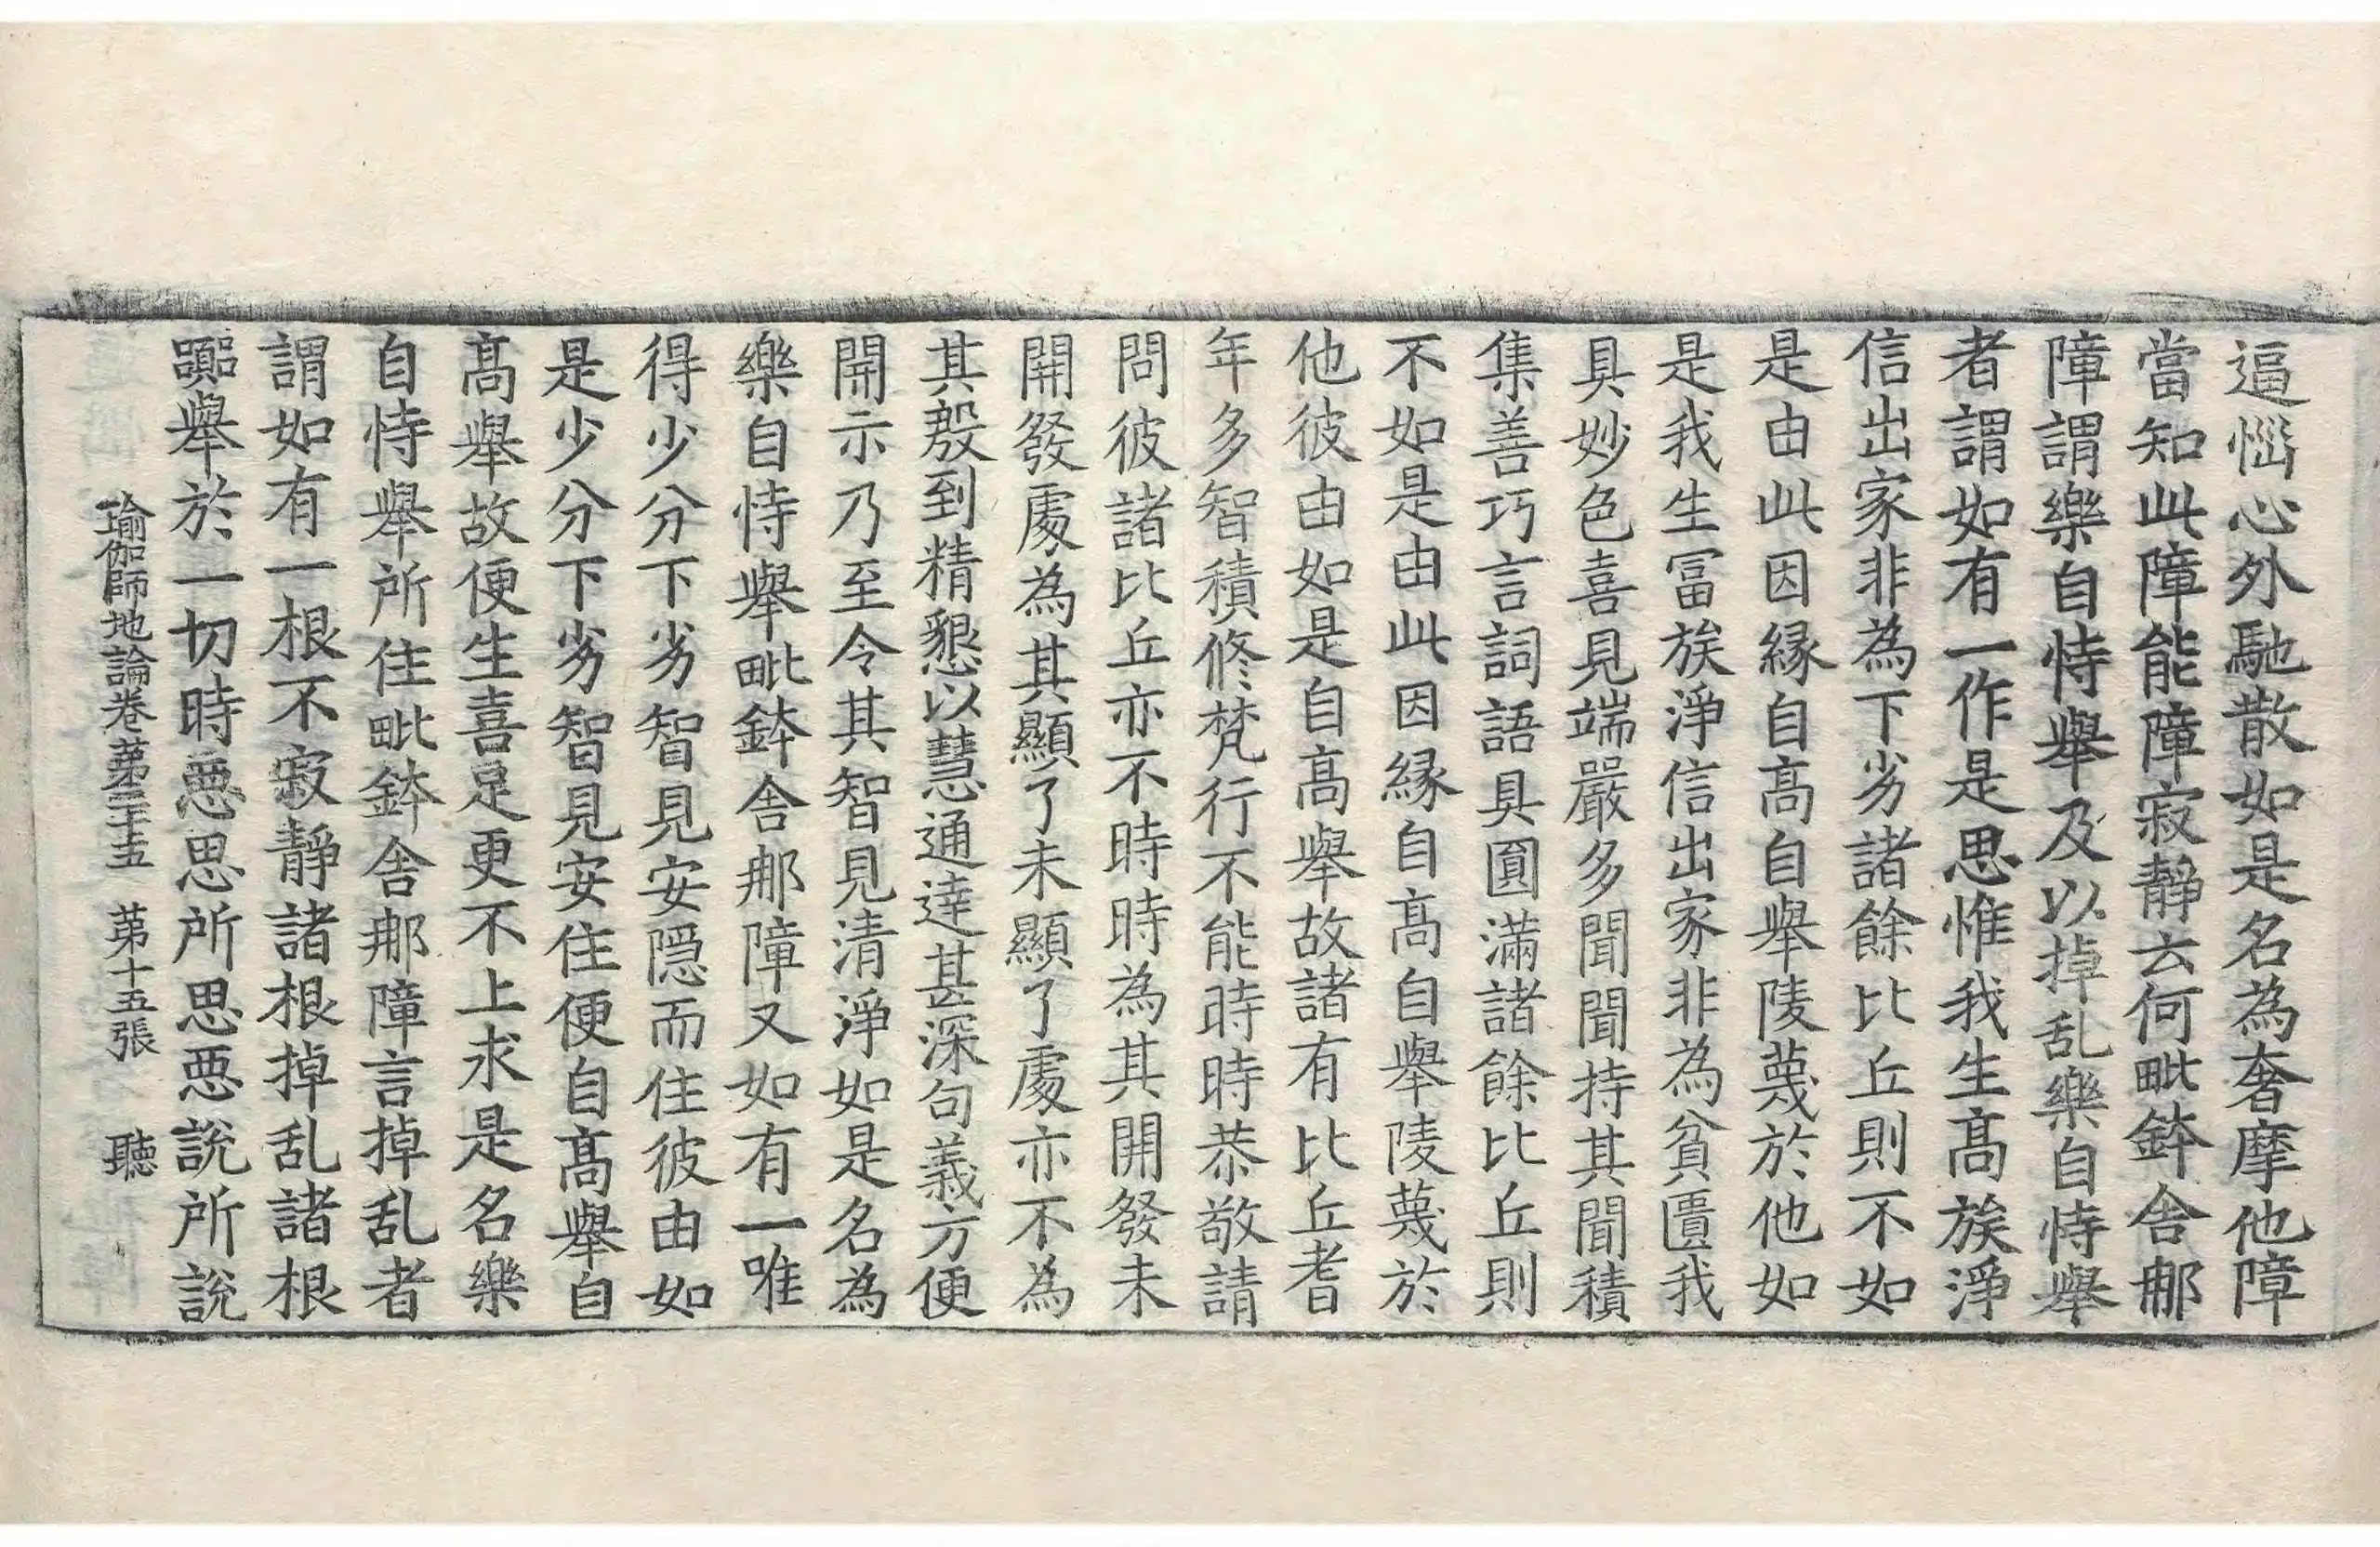 逼惱心外馳散如是名為奢摩他障
當知此障能障寂靜云何毗鉢舍那
障謂樂自恃舉及以掉乱樂自恃舉
者謂如有一作是思惟我生高族淨
信出家非為下劣諸餘比丘則不如
是由此因縁自高自舉陵蔑於他如
是我生冨族淨信出家非為貧匱我
具妙色喜見端嚴多聞聞持其聞積
集善巧言詞語具圓滿諸餘比丘則
不如是由此因縁自髙自舉陵蔑於
他彼由如是自高舉故諸有比丘耆
年多智積修梵行不能時時恭敬請
問彼諸比丘亦不時時為其開發未
開發處為其顯了未顯了處亦不為
其慇到精懇以慧通達甚深句義方便
開示乃至令其智見清淨如是名為
樂自恃舉毗鉢舍那障又如有一唯
得少分下劣智見安隱而住彼由如
是少分下劣智見安住便自髙舉自
髙舉故便生喜足更不上求是名樂
自恃舉所住毗鉢舍那障言掉乱者
謂如有一根不寂靜諸根掉乱諸根
嚻舉於一切時惡思所思惡說所說
瑜伽師地論卷苐二十五　苐十五張　聽